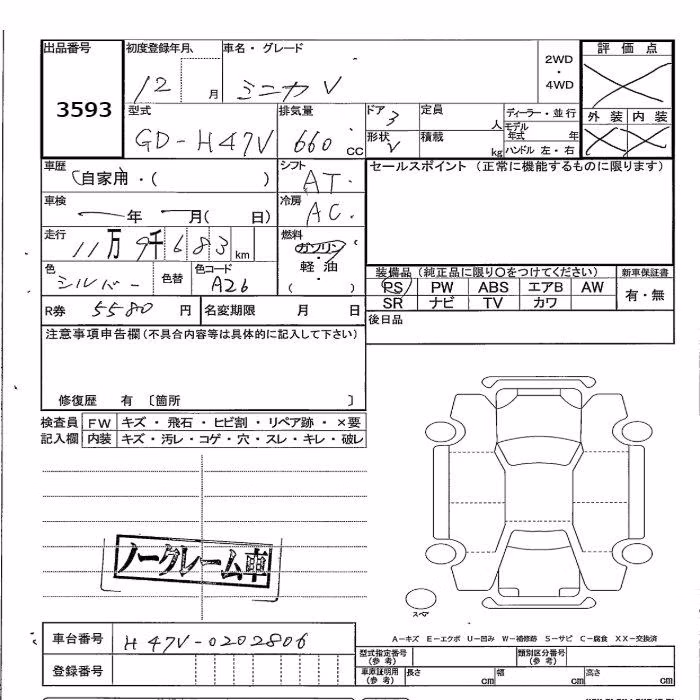 出品番号 3593
初度登録年月 12 月
車名・グレード ミニカ V
2WD・4WD
評価点
外装 内装
型式 GD-H47V
排気量 660 CC
ドア 3
形状 V
定員 人
積載 kg
ディーラー・並行
モデル年式 年
ハンドル 左・右
車歴 自家用・( )
シフト AT
冷房 AC
車検 年 月( 日)
走行 11万9千683km
燃料 ガソリン 軽・油 ( )
色 シルバー 色替
色コード A26
R券 5580円
名変期限 月 日
セールスポイント (正常に機能するものに限ります)
装備品(純正品に限り○をつけてください)
新車保証書 有・無
PS PW ABS エアB AW
SR ナビ TV カワ
後日品
注意事項申告欄(不具合内容等は具体的に記入して下さい)
修復歴 有 〔箇所 〕
検査員記入欄
FW キズ・飛石・ヒビ割・リペア跡・×要
内装 キズ・汚レ・コゲ・穴・スレ・キレ・破レ
ノークレーム車
スペア
A-キズ E-エクボ U-凹み W-補修跡 S-サビ C-腐食 XX-交換済
車台番号 H47V-0202806
登録番号
型式指定番号(参考) 類別区分番号(参考)
車庫証明用(参考) 長さ cm 幅 cm 高さ cm